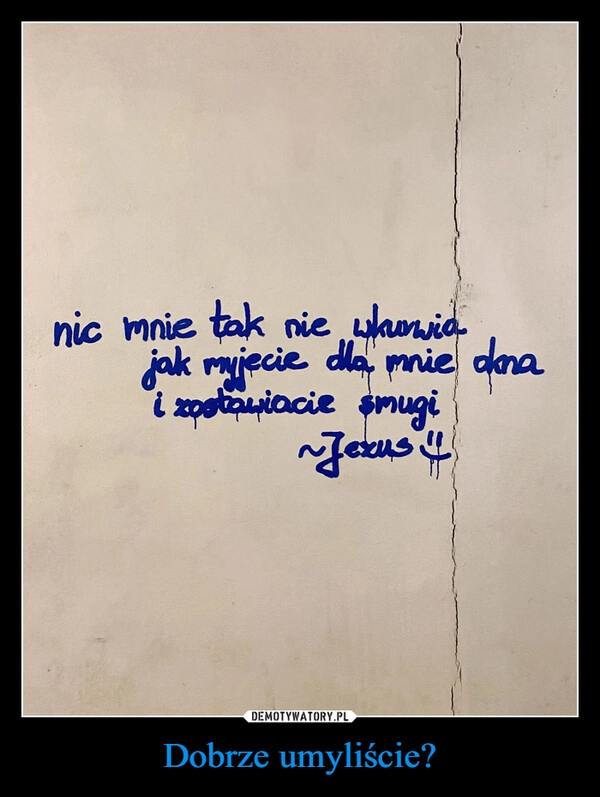 nic mnie tak nie wkurwia
jak myjecie dla mnie okna
i zostawiacie smugi
~Jezus !!
DEMOTYWATORY.PL
Dobrze umyliście?